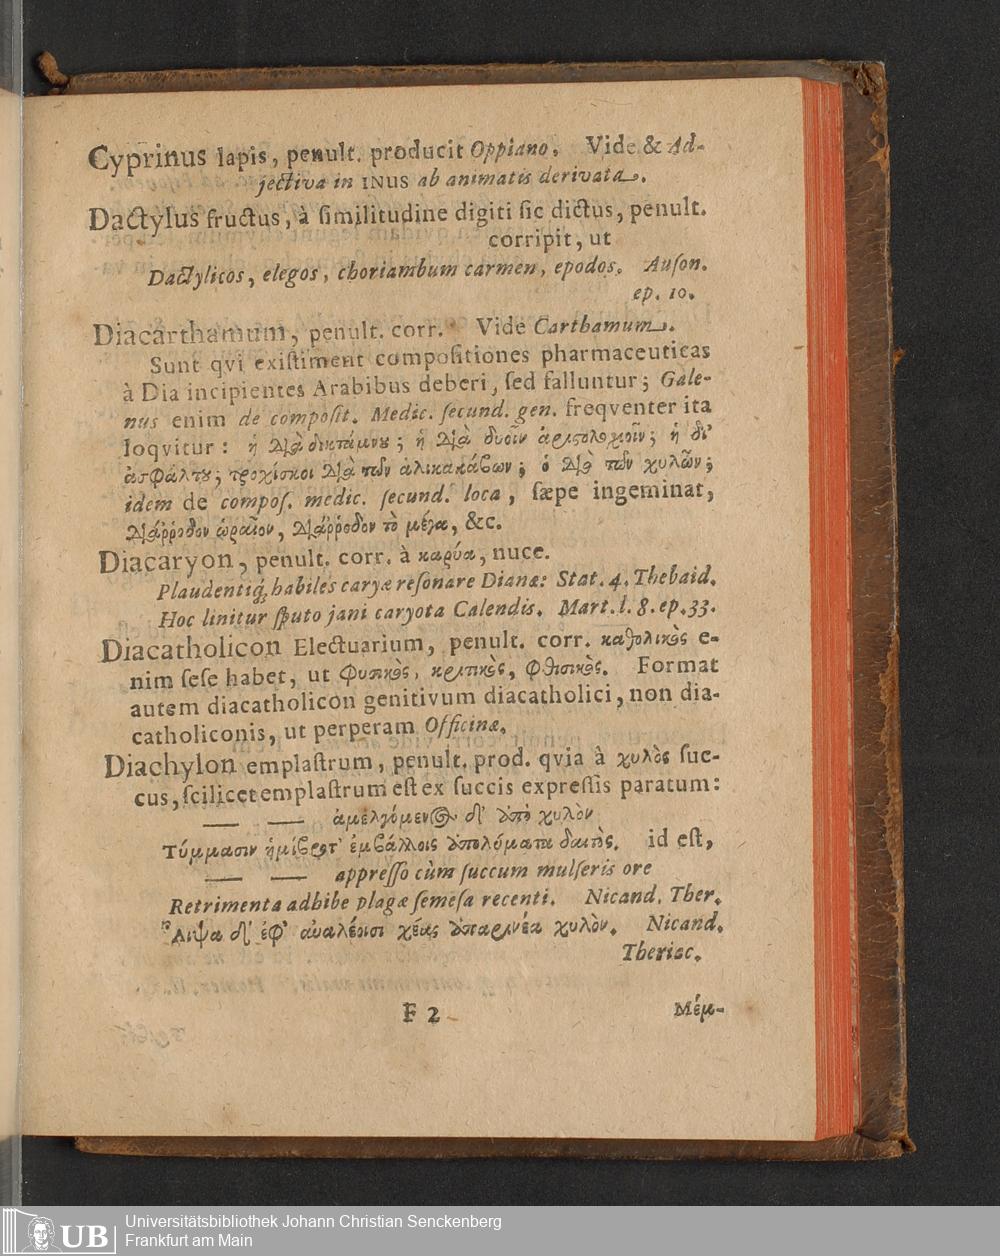 Cyprinus lapis, penult. producit Oppiano. Vide & Ad-
jectiva in INUS ab animatis derivata.
Dactylus fructus, à similitudine digiti sic dictus, penult.
corripit, ut
Dactylicos, elegos, choriambum carmen, epodos. Auson.
ep. 10.
Diacarthamum, penult. corr. Vide Carthamum.
Sunt qvi existiment compositiones pharmaceuticas
à Dia incipientes Arabibus deberi, sed falluntur; Gale-
nus enim de composit. Medic. secund. gen. freqventer ita
loqvitur: ἡ Διὰ δικτάμνου; ἡ Διὰ δυοῖν ἀριστολοχιοῖν; ἡ δι'
ἀσφάλτου; τροχίσκοι Διὰ τῶν ἁλικακάβων; ὁ Διὰ τῶν χυλῶν;
idem de compos. medic. secund. loca, sæpe ingeminat,
Διάῤῥοδον ὡραῖον, Διάῤῥοδον τὸ μέγα, &c.
Diacaryon, penult. corr. à καρύα, nuce.
Plaudentiq́; habiles caryæ resonare Dianæ: Stat. 4. Thebaid.
Hoc linitur sputo jani caryota Calendis. Mart. l. 8. ep. 33.
Diacatholicon Electuarium, penult. corr. καθολικὸς e-
nim sese habet, ut φυσικὸς, κριτικὸς, φθισικὸς. Format
autem diacatholicon genitivum diacatholici, non dia-
catholiconis, ut perperam Officinæ.
Diachylon emplastrum, penult. prod. qvia à χυλὸς suc-
cus, scilicet emplastrum est ex succis expressis paratum:
— — ἀμελγόμενος δι' ἀπὸ χυλὸν
Τύμμασιν ἡμίβρωτ' ἐμβάλλοις ἀπολύματα δαιτὸς. id est,
— — appresso cùm succum mulseris ore
Retrimenta adhibe plagæ semesa recenti. Nicand. Ther.
Αἶψα δι' ἐφ' ἁυαλέῃσι χέας ἀπαρινέα χυλὸν. Nicand.
Theriac.
F 2 Μέμ-
Universitätsbibliothek Johann Christian Senckenberg
Frankfurt am Main
UB